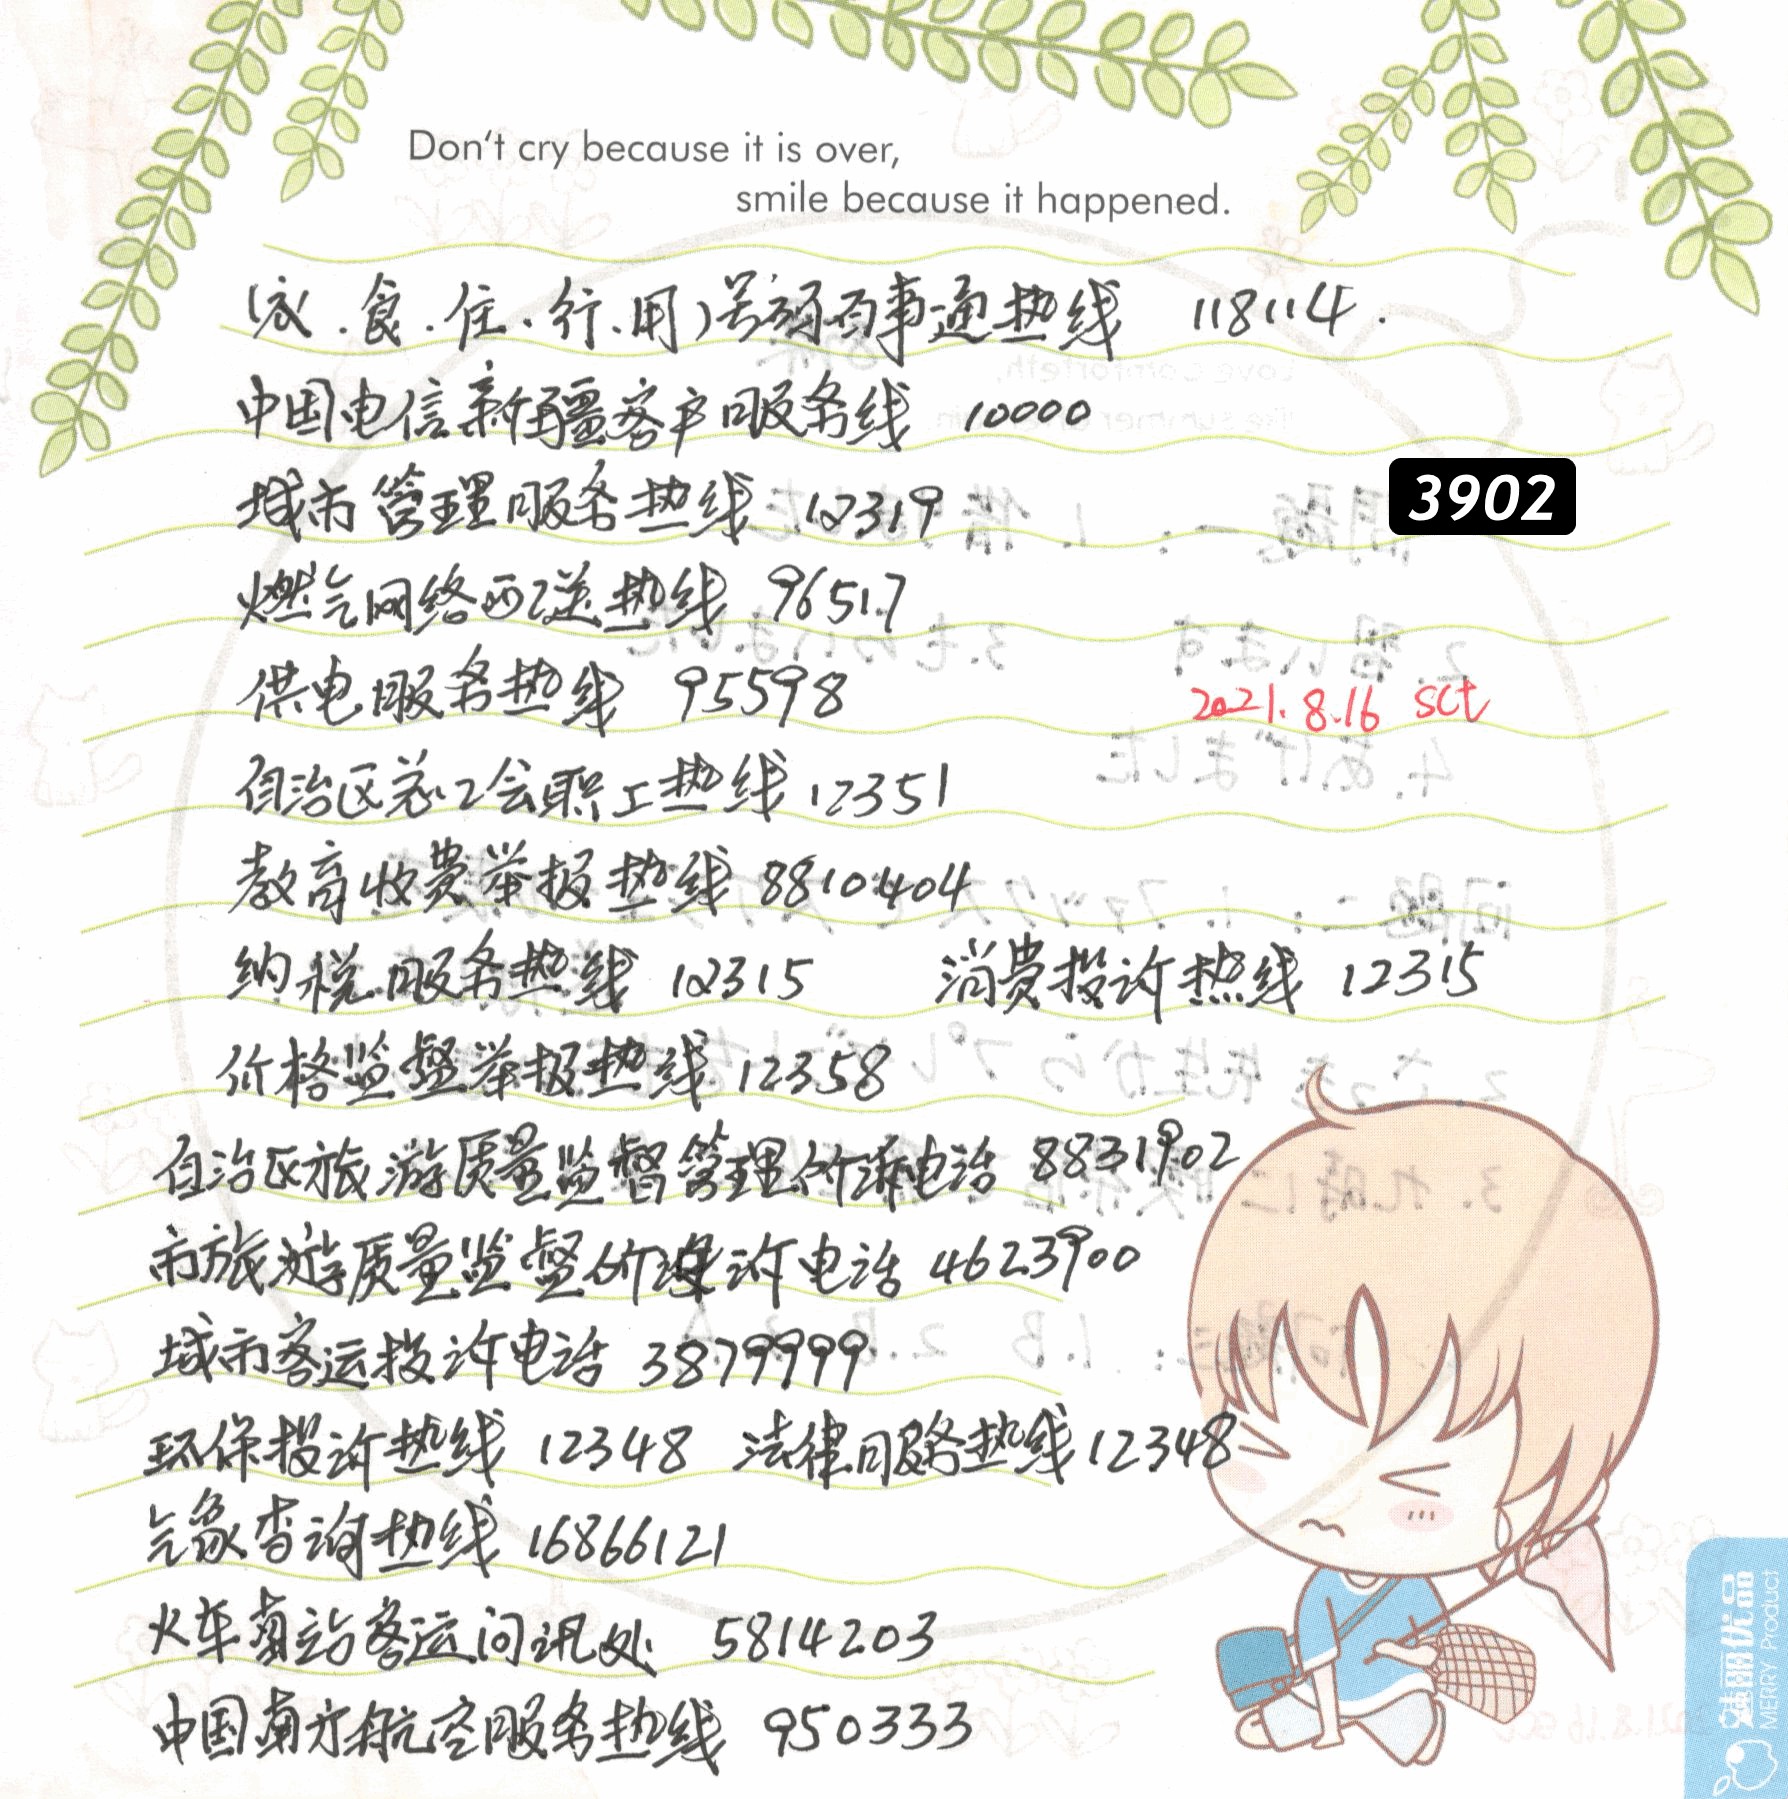 Don't cry because it is over,
smile because it happened.
(衣.食.住.行.用)号码百事通热线 118114.
中国电信新疆客户服务线 10000
城市管理服务热线 12319
3902
燃气网络配送热线 96517
供电服务热线 95598
2021.8.16 sct
自治区总工会职工热线 12351
教育收费举报热线 8810404
纳税服务热线 12315 消费投诉热线 12315
价格监督举报热线 12358
自治区旅游质量监督管理所诉电话 8831902
市旅游质量监督所诉电话 4623900
城市客运投诉电话 3879999
环保投诉热线 12348 法律服务热线 12348
气象查询热线 16866121
火车南站客运问讯处 5814203
中国南方航空服务热线 950333
魅丽优品
MERRY Product